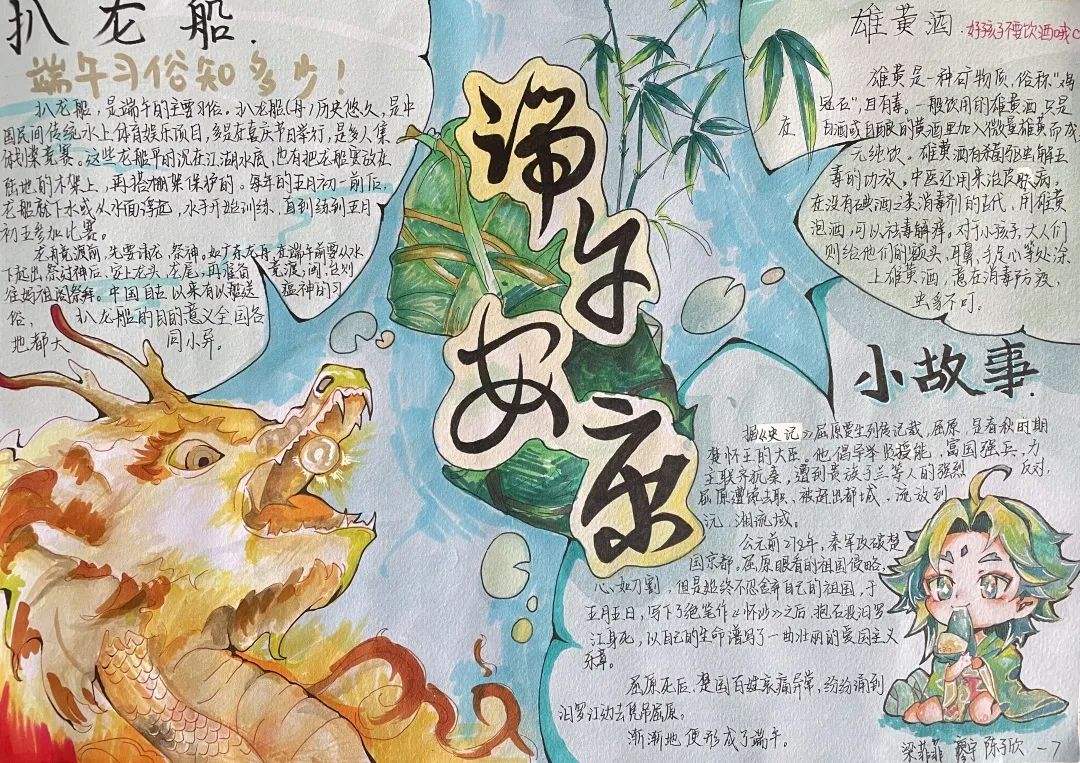 扒龙船.
端午习俗知多少!
扒龙船,是端午的主要习俗。扒龙船(舟)历史悠久,是中
国民间传统水上体育娱乐项目,多是在喜庆节日举行,是多人集
体划桨竞赛。这些龙船平时沉在江湖水底,也有把龙船置放在
陆地的木架上,再搭棚架保护的。每年的五月初一前后,
龙船就下水或从水面浮起,水手开始训练、直到练到五月
初五参加比赛。
龙舟竞渡前,先要请龙、祭神。如广东龙舟,在端午前要从水
下起出,祭过神后,安上龙头、龙尾,再准备竞渡,闽、台则
往妈祖庙祭拜。中国自古以来有以船送瘟神的习
俗,扒龙船的目的意义全国各
地都大同小异。
端午安康
雄黄酒.好孩子不要饮酒哦
雄黄是一种矿物质,俗称"鸡
冠石",且有毒。一般饮用的雄黄酒,只是
在白酒或自酿的黄酒里加入微量雄黄而成,
无纯饮。雄黄酒有杀菌驱虫解五
毒的功效,中医还用来治皮肤病,
在没有碘酒之类消毒剂的古代,用雄黄
泡酒,可以祛毒解痒。对于小孩子,大人们
则给他们的额头、耳鼻、手足心等处涂
上雄黄酒,意在消毒防疫,
虫豸不叮.
小故事.
据《史记》屈原贾生列传记载,屈原,是春秋时期
楚怀王的大臣。他倡导举贤授能,富国强兵,力
主联齐抗秦,遭到贵族子兰等人的强烈反对,
屈原遭馋去职,被赶出都城,流放到
沅、湘流域。
公元前278年,秦军攻破楚
国京都。屈原眼看的祖国侵略,
心如刀割,但是始终不忍舍弃自己的祖国,于
五月五日,写下了绝笔作《怀沙》之后,抱石投汨罗
江身死,以自己的生命谱写了一曲壮丽的爱国主义
乐章。
屈原死后,楚国百姓哀痛异常,纷纷涌到
汨罗江边去凭吊屈原。
渐渐地便形成了端午。
梁菲菲 廖宇 陈子欣 一7